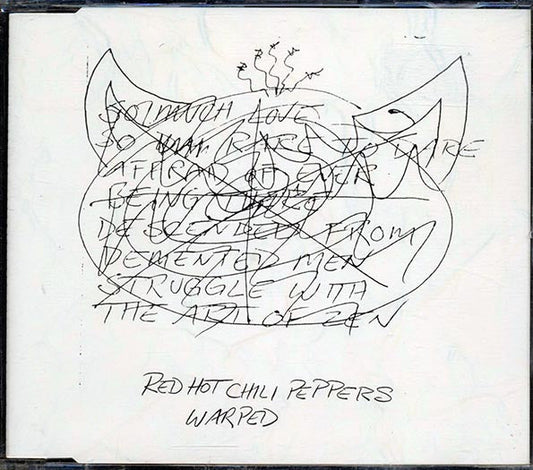 SO MUCH LOVE
SO RARE TO DARE
AFFRAID OF EVER
BEING THERE
DESCENDED FROM
DEMENTED MEN
STRUGGLE WITH
THE ART OF ZEN
RED HOT CHILI PEPPERS
WARPED